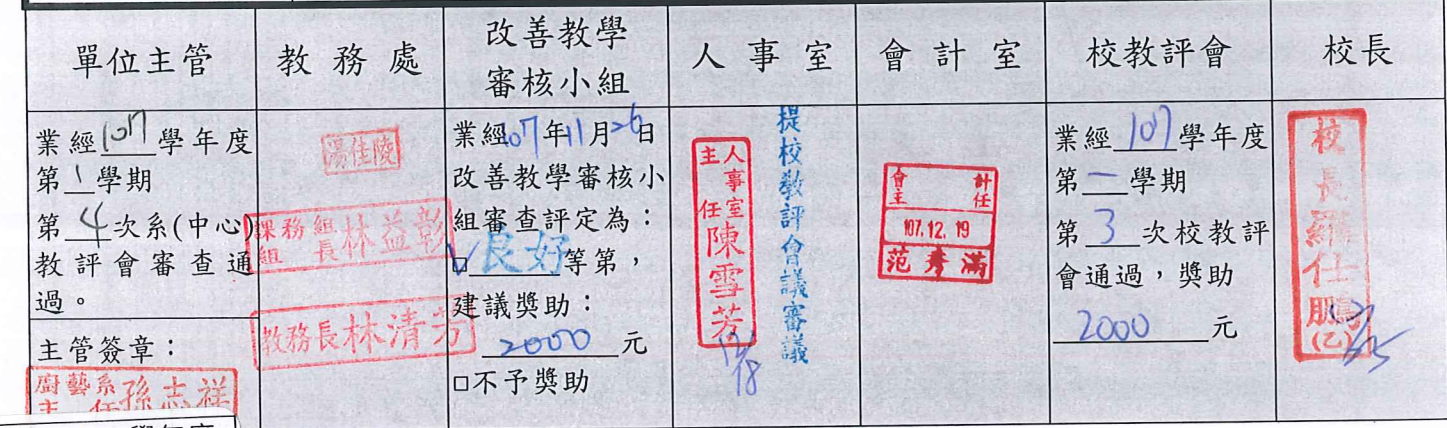 單位主管
教務處
改善教學
審核小組
人事室
會計室
校教評會
校長
業經107學年度
第1學期
第4次系(中心)
教評會審查通
過。
主管簽章：
廚藝系
主任孫志祥
湯佳陵
課務組
組長林益彰
教務長林清芳
業經107年11月26日
改善教學審核小
組審查評定為：
□良好等第，
建議獎助：
2000元
□不予獎助
人事室
主任陳雪芳
12/18
提校教評會議審議
會計
主任
107.12.19
范秀滿
業經107學年度
第一學期
第3次校教評
會通過，獎助
2000元
校長羅仕鵬(乙)
學年度